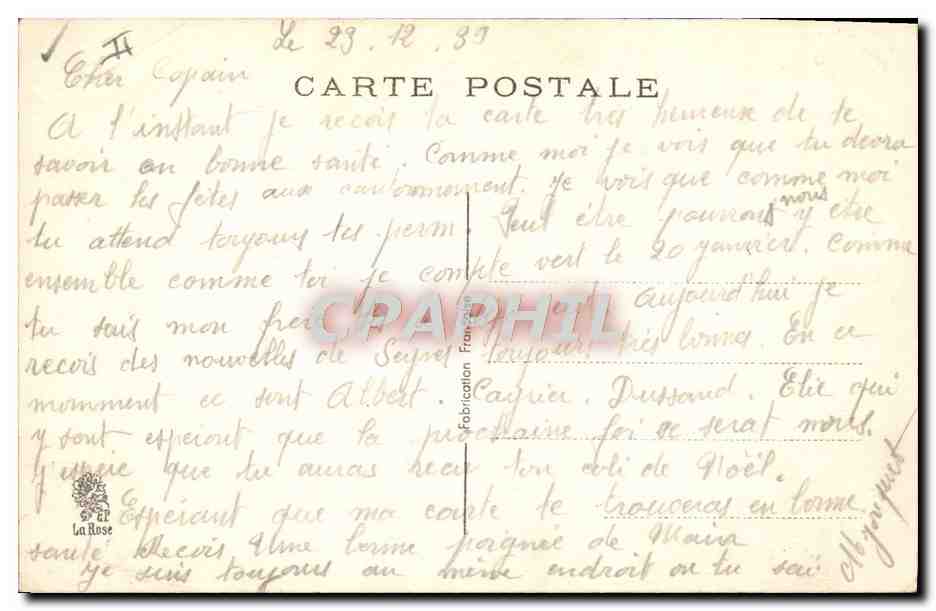 II
Le 29.12.39
Cher Copain
CARTE POSTALE
A l'instant je recois ta carte tres heureuse de te
savoir en bonne santé. Comme moi je vois que tu devra
passer les fêtes aux cantonnement. Je vois que comme moi
tu attend toujours tes perm. Peut être pourrons nous y être
ensemble comme toi je compte vert le 20 janvier. Comme
tu sais mon frere aujourd'hui je
recois des nouvelles de Seynes toujours très bonnes. En ce
momment ce sont Albert. Dussaud. Elie qui
y sont esperont que la prochaine foi se serat nous.
J'espère que tu auras recu ton coli de Noël.
Espérant que ma carte te trouveras en bonne
santé Recois Une bonne poignée de Main
Je suis toujours au même endroit ou tu sai
Fabrication Française
La Rose
CPAPHIL